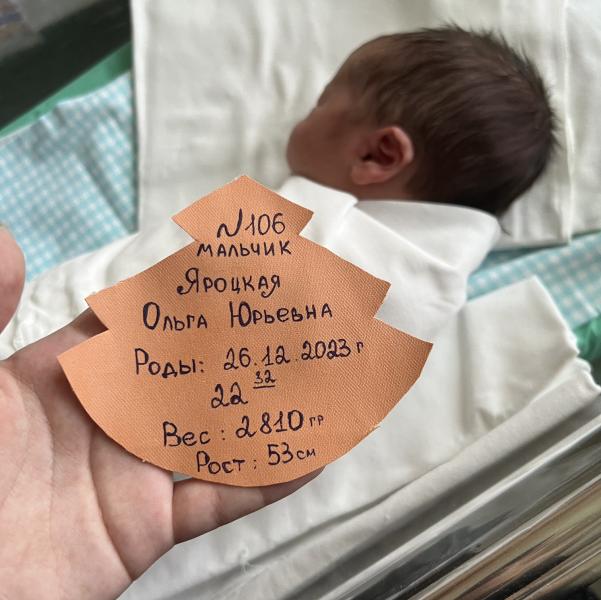 №106
мальчик
Яроцкая
Ольга Юрьевна
Роды: 26.12.2023 г
22 32
Вес: 2810 гр
Рост: 53 см